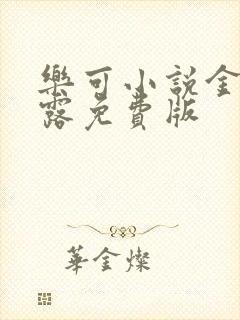 樂可小說金
露免費版
華金燦